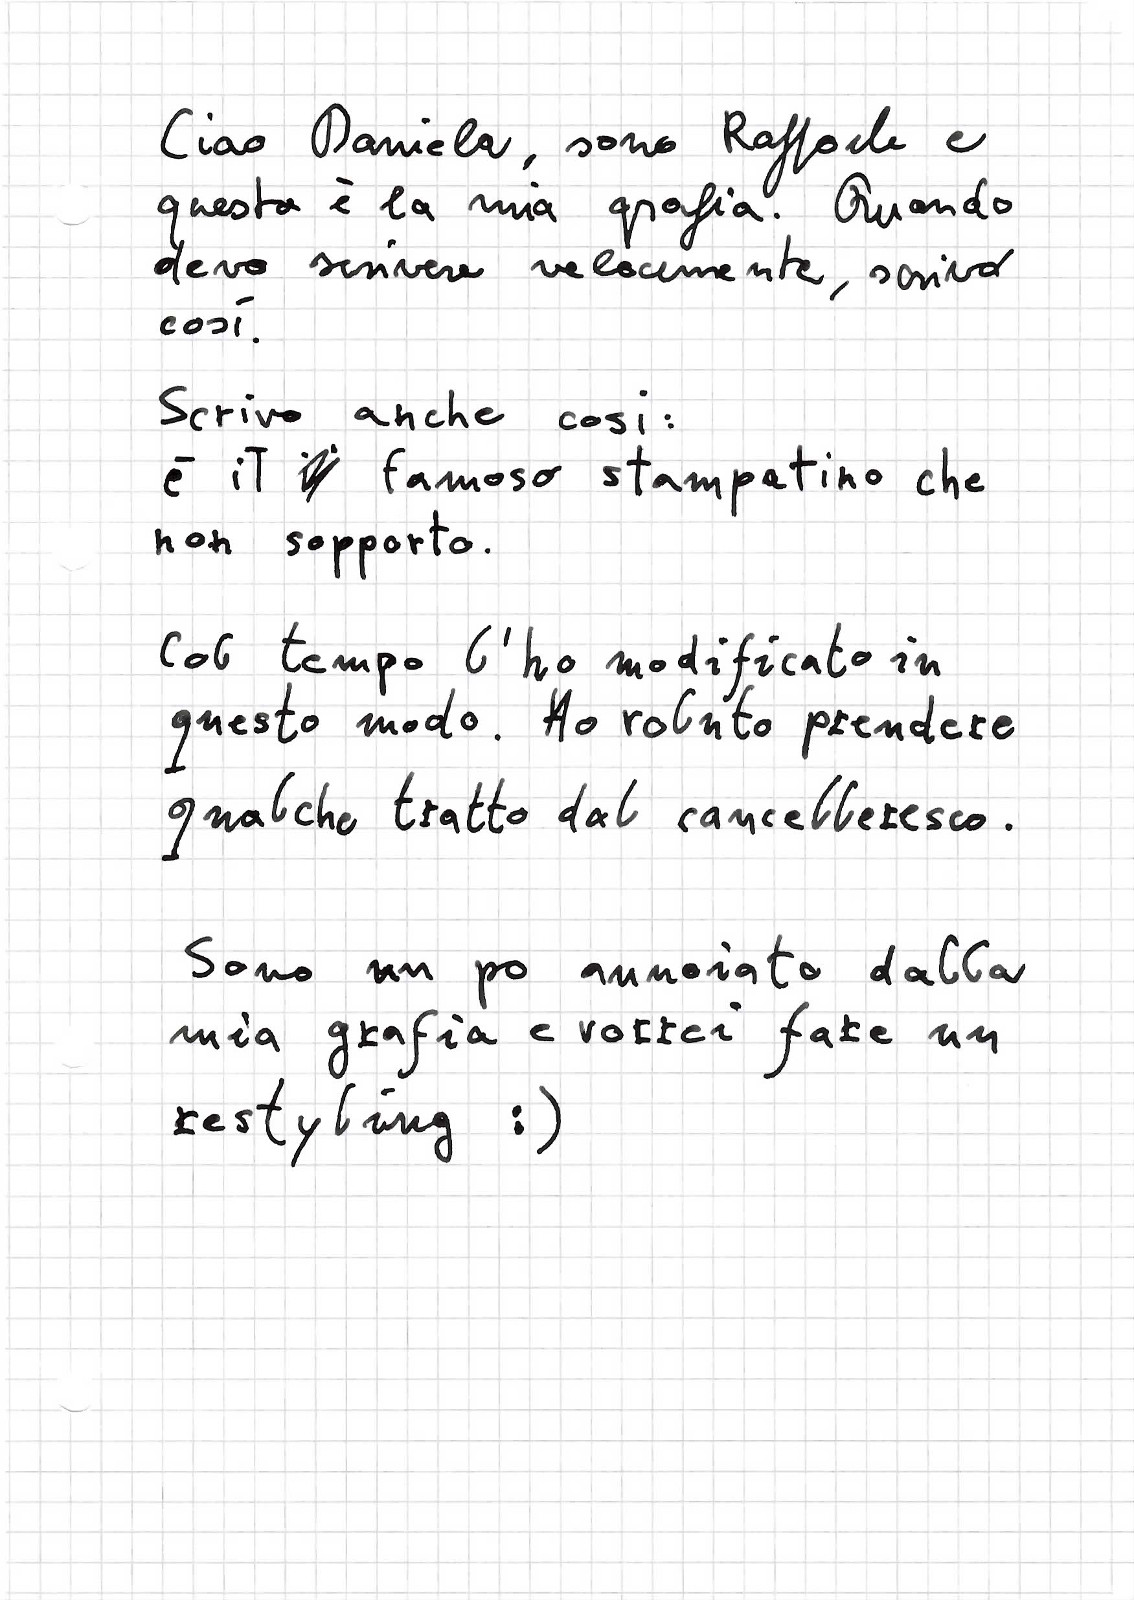 Ciao Daniela, sono Raffaele e
questa è la mia grafia. Quando
devo scrivere velocemente, scrivo
così.
Scrivo anche così:
è il famoso stampatino che
non sopporto.
Col tempo l'ho modificato in
questo modo. Ho voluto prendere
qualche tratto dal cancelleresco.
Sono un po annoiato dalla
mia grafia e vorrei fare un
restyling :)